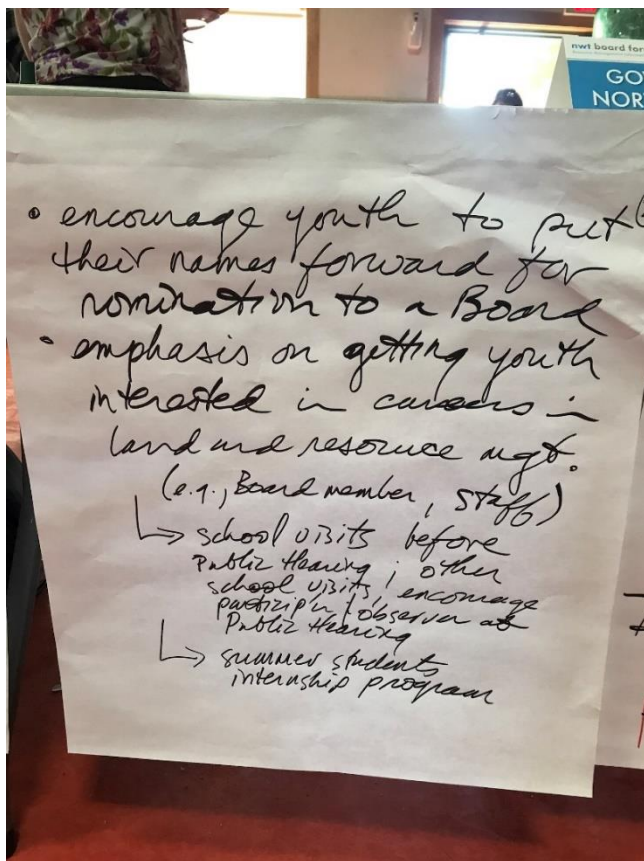 nwt board for
GO
NOR
• encourage youth to put
their names forward for
nomination to a Board
• emphasis on getting youth
interested in careers in
land and resource mgt.
(e.g., Board member, staff)
↳ school visits before
Public Hearing ; other
school visits, encourage
particip'n / observer at
Public Hearing
↳ summer students
internship program